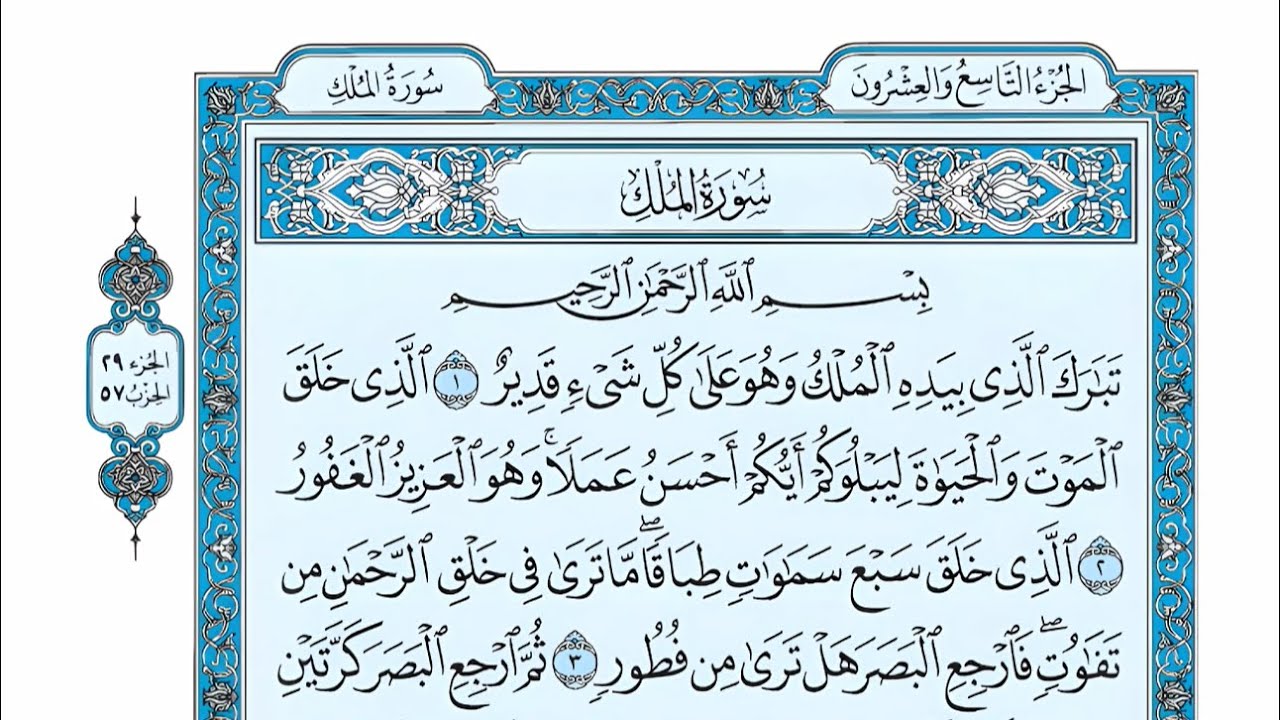 الجُزْءُ التَّاسِعُ وَالعِشْرُونَ
سُورَةُ المُلْكِ
سُورَةُ المُلْكِ
بِسْمِ ٱللَّهِ ٱلرَّحْمَٰنِ ٱلرَّحِيمِ
تَبَٰرَكَ ٱلَّذِى بِيَدِهِ ٱلْمُلْكُ وَهُوَ عَلَىٰ كُلِّ شَىْءٍ قَدِيرٌ ١ ٱلَّذِى خَلَقَ
ٱلْمَوْتَ وَٱلْحَيَوٰةَ لِيَبْلُوَكُمْ أَيُّكُمْ أَحْسَنُ عَمَلًاۚ وَهُوَ ٱلْعَزِيزُ ٱلْغَفُورُ
٢ ٱلَّذِى خَلَقَ سَبْعَ سَمَٰوَٰتٍ طِبَاقًاۖ مَّا تَرَىٰ فِى خَلْقِ ٱلرَّحْمَٰنِ مِن
تَفَٰوُتٍۖ فَٱرْجِعِ ٱلْبَصَرَ هَلْ تَرَىٰ مِن فُطُورٍ ٣ ثُمَّ ٱرْجِعِ ٱلْبَصَرَ كَرَّتَيْنِ
الجُزء ٢٩
الحِزْبُ ٥٧